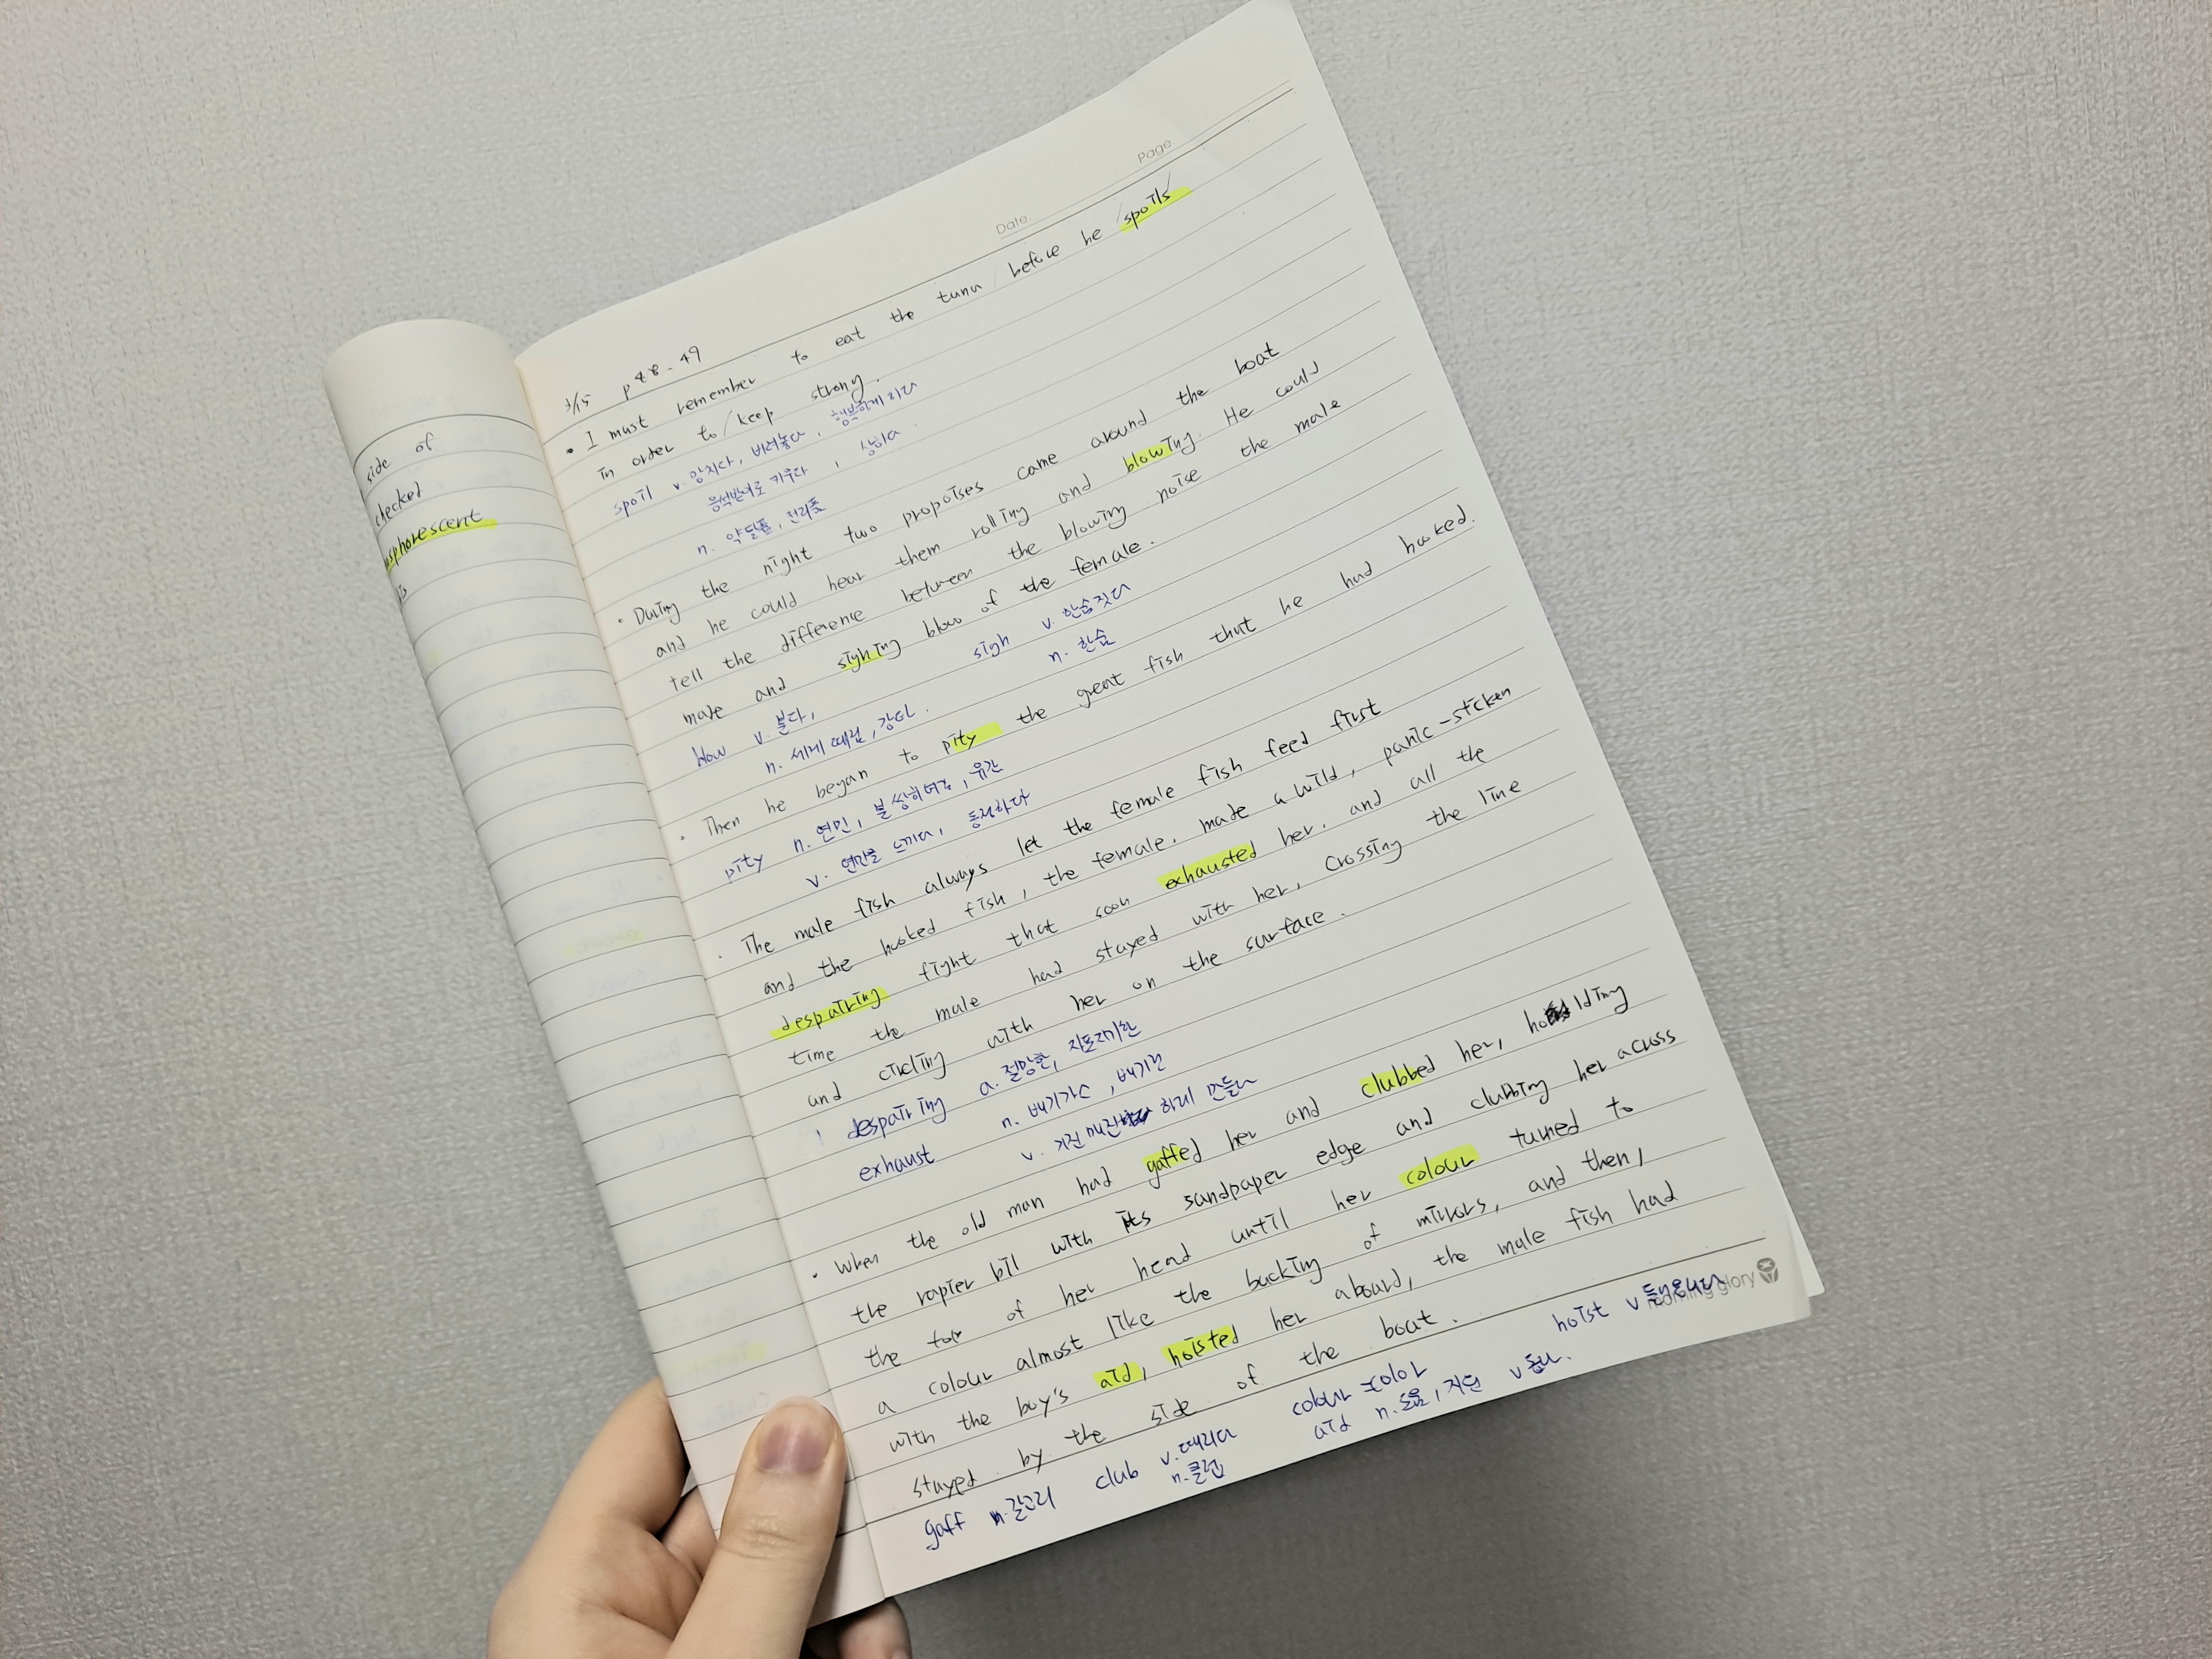 side of
checked
sphorescent
Date
Page.
3/15 p 48 - 49
• I must remember to eat the tuna / before he / spoils
in order to / keep strong.
spoil v. 망치다, 버려놓다, 행복하게 지다
응석받이로 키우다, 상하다.
n. 약탈품, 전리품
• During the night two propoises came around the boat
and he could hear them rolling and blowing. He could
tell the difference between the blowing noise the male
made and sighing blow of the female.
blow v. 불다,
n. 세게 때림, 강타.
sigh v. 한숨짓다
n. 한숨
• Then he began to pity the great fish that he had hooked.
pity n. 연민, 불쌍히여김, 유감
v. 연민을 느끼다, 동정하다
• The male fish always let the female fish feed first
and the hooked fish, the female, made a wild, panic-sticken
despairing fight that soon exhausted her, and all the
time the male had stayed with her, crossing the line
and circling with her on the surface.
despairing a. 절망한, 자포자기한
exhaust n. 배기가스, 배기관
v. 기진맥진 하게 만들다
• When the old man had gaffed her and clubbed her, holding
the rapier bil with its sandpaper edge and clubbing her across
the top of her head until her colour turned to
a colour almost like the backing of mirrors, and then,
with the boy's aid, hoisted her aboard, the male fish had
stayed by the side of the boat.
gaff n. 갈고리
club v. 때리다
n. 클럽
colour =color
aid n. 도움, 지원 v 돕다.
hoist v 들어올리다
morning glory